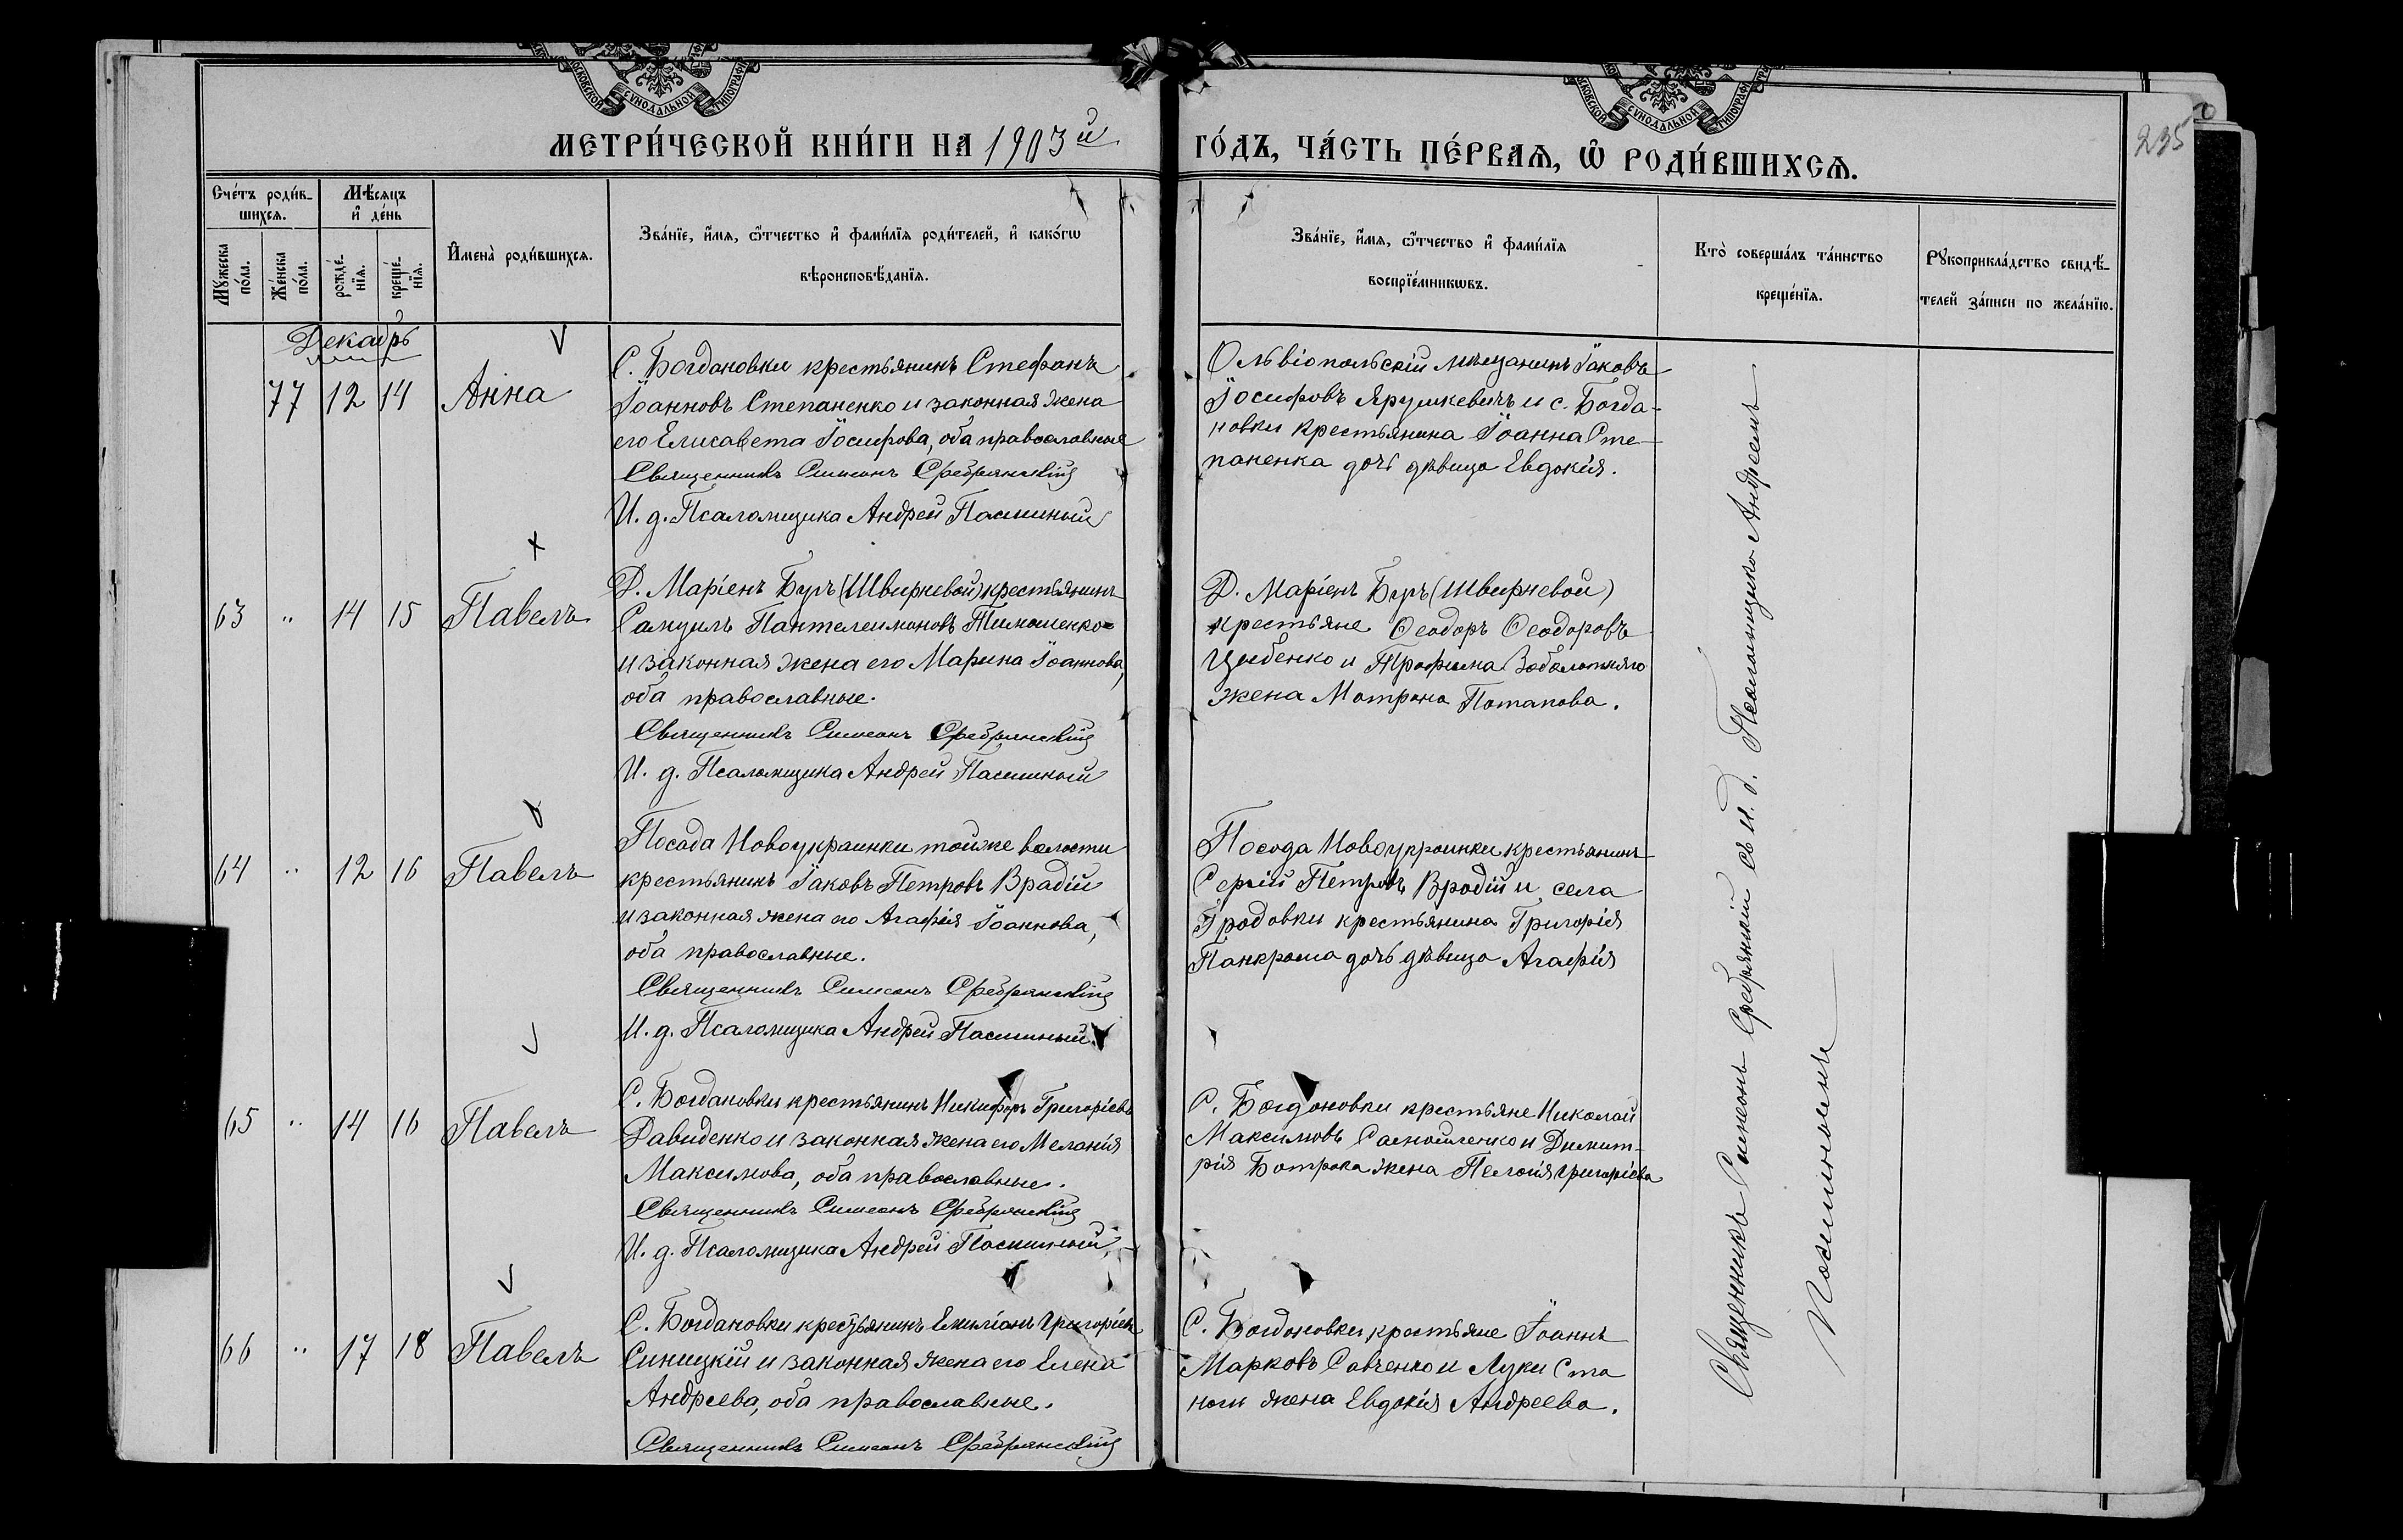 МОСКОВСКОЙ СѴНОДАЛЬНОЙ ТИПОГРАФІ
МОСКОВСКОЙ СѴНОДАЛЬНОЙ ТИПОГРАФІ
МЕТРИ́ЧЕСКОЙ КНИ́ГИ НА 1903й
ГО́ДЪ, ЧА́СТЬ ПЕ́РВАѦ, Ѡ҆ РОДИ́ВШИХСѦ.
235
Сче́тъ роди́в-
шихсѧ.
Мꙋ́жеска по́ла.
Же́нска по́ла.
Мѣ́сѧцъ
и҆ де́нь
рожде́-
нїѧ.
креще́-
нїѧ.
И҆мена̀ роди́вшихсѧ.
Зва́нїе, и҆́мѧ, ѻ҆́тчество и҆ фами́лїѧ роди́телей, и҆ како́гѡ
вѣроисповѣ́данїѧ.
Зва́нїе, и҆́мѧ, ѻ҆́тчество и҆ фами́лїѧ
воспрїе́мникѡвъ.
Кто̀ совершáлъ та́инство
креще́нїѧ.
Рꙋкоприкла́дство свидѣ́-
телей за́писи по жела́нїю.
Декабрь
77 12 14 Анна
С. Богдановки крестьянинъ Стефанъ
Іоанновъ Степаненко и законная жена
его Елисавета Іосифова, оба православные
Священникъ Симеонъ Сребрянскій
И. д. Псаломщика Андрей Пасичный
Ольвіопольскій мѣщанинъ Іаковъ
Іосифовъ Ярушкевичъ и с. Богда-
новки крестьянина Іоанна Сте-
паненка дочь дѣвица Евдокія.
63 " 14 15 Павелъ
Д. Маріенъ Буръ (Швирневой) крестьянинъ
Самуилъ Пантелеимоновъ Тимошенко
и законная жена его Марина Іоаннова,
оба православные.
Священникъ Симеонъ Сребрянскій
И. д. Псаломщика Андрей Пасичный
Д. Маріенъ Буръ (Швирневой)
крестьяне Ѳеодоръ Ѳеодоровъ
Цыбенко и Трофима Заболотняго
жена Матрона Потапова.
64 " 12 16 Павелъ
Посада Новоукраинки тойже волости
крестьянинъ Іаковъ Петровъ Врадій
и законная жена его Агафія Іоаннова,
оба православные.
Священникъ Симеонъ Сребрянскій
И. д. Псаломщика Андрей Пасичный
Посада Новоукраинки крестьянинъ
Сергій Петровъ Врадій и села
Гродовки крестьянина Григорія
Панкраша дочь дѣвица Агафія
65 " 14 16 Павелъ
С. Богдановки крестьянинъ Никифоръ Григоріевъ
Давиденко и законная жена его Меланія
Максимова, оба православные.
Священникъ Симеонъ Сребрянскій
И. д. Псаломщика Андрей Пасичный
С. Богдановки крестьяне Николай
Максимовъ Самойленко и Димит-
рія Ботрака жена Пелагія Григоріева
66 " 17 18 Павелъ
С. Богдановки крестьянинъ Емиліанъ Григоріевъ
Синицкій и законная жена его Елена
Андреева, оба православные.
Священникъ Симеонъ Сребрянскій
С. Богдановки крестьяне Іоаннъ
Марковъ Савченко и Луки Ста
жена Евдокія Андреева.
Священникъ Симеонъ Сребрянскій съ и. д. Псаломщика Андреемъ
Пасичнымъ